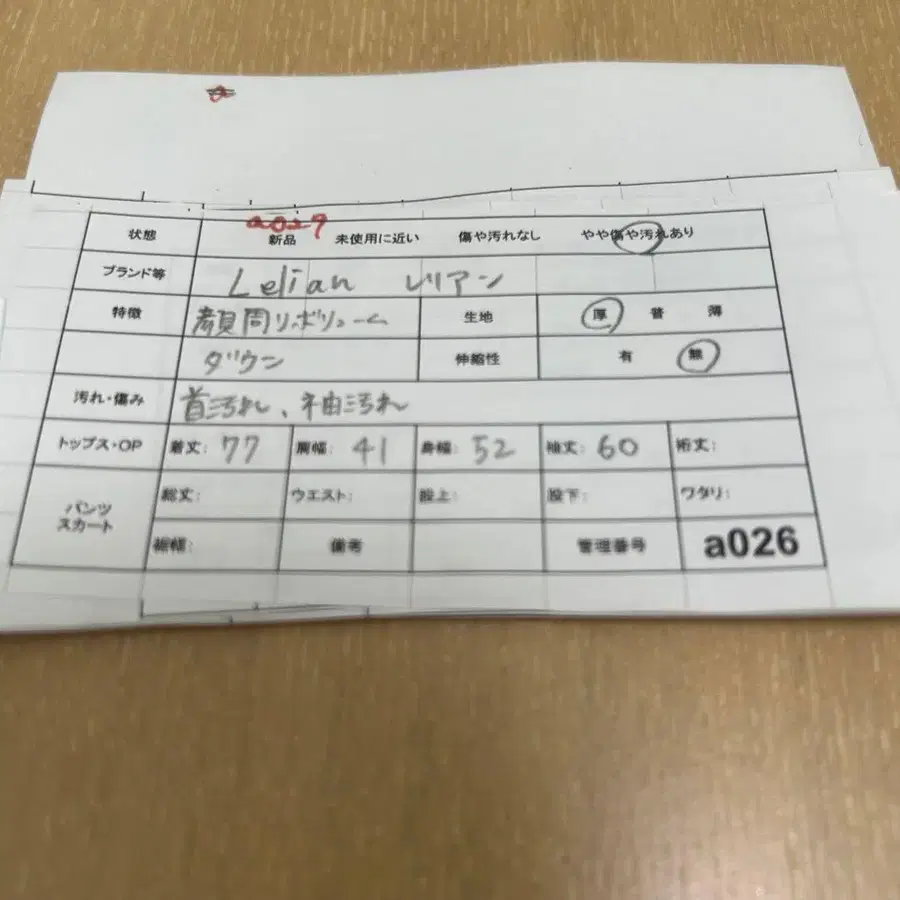 a029
状態 新品 未使用に近い 傷や汚れなし やや傷や汚れあり
ブランド等 Lelian レリアン
特徴 顔周りボリューム 生地 厚 普 薄
ダウン 伸縮性 有 無
汚れ・傷み 首汚れ、袖汚れ
トップス・OP 着丈: 77 肩幅: 41 身幅: 52 袖丈: 60 裄丈:
パンツ
スカート
総丈: ウエスト: 股上: 股下: ワタリ:
裾幅: 備考 管理番号 a026